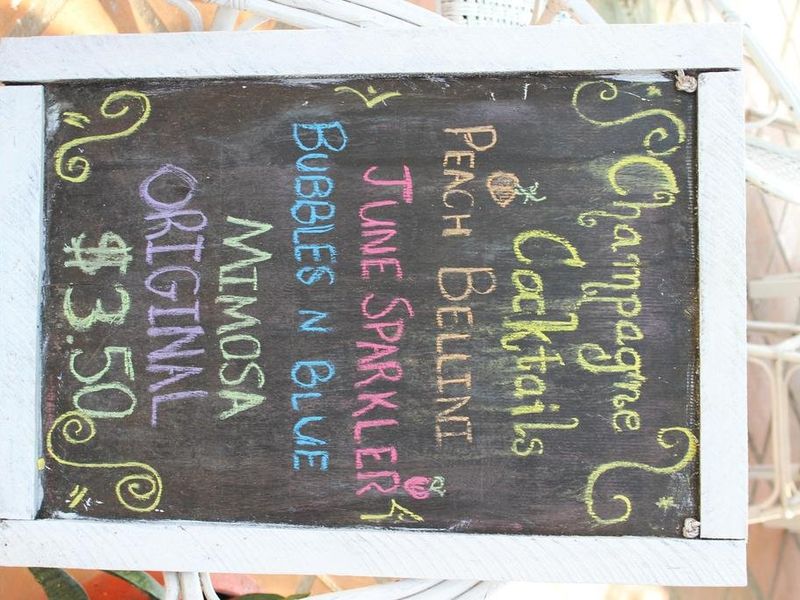 Champagne
Cocktails
PEACH BELLINI
JUNE SPARKLER
BUBBLES N BLUE
MIMOSA
ORIGINAL
$3.50